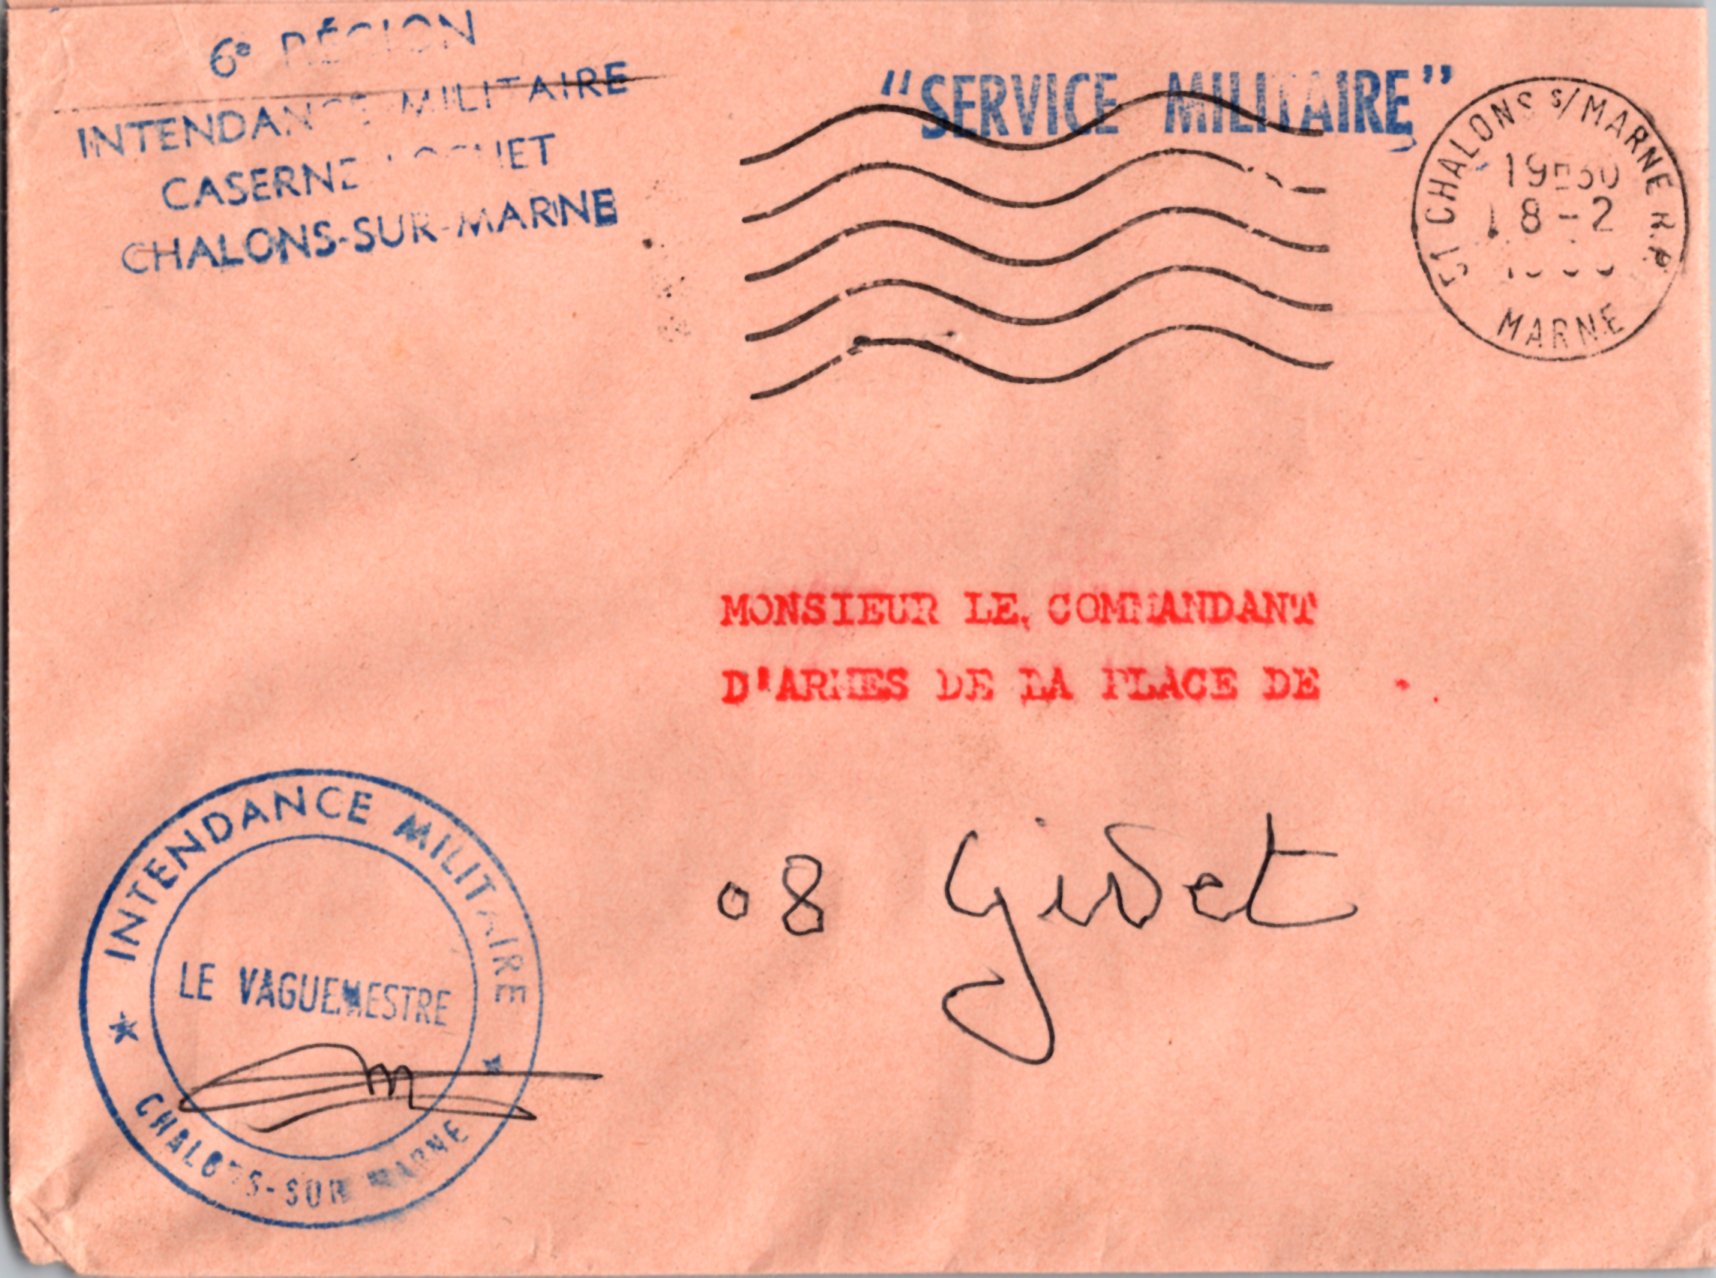 6e RÉGION
INTENDANCE MILITAIRE
CASERNE
CHALONS-SUR-MARNE
"SERVICE MILITAIRE"
51 CHALONS S/MARNE R.P.
19H30
18-2
MARNE
MONSIEUR LE COMMANDANT
D'ARMES DE LA PLACE DE
08 Givet
INTENDANCE MILITAIRE
LE VAGUEMESTRE
CHALONS-SUR MARNE